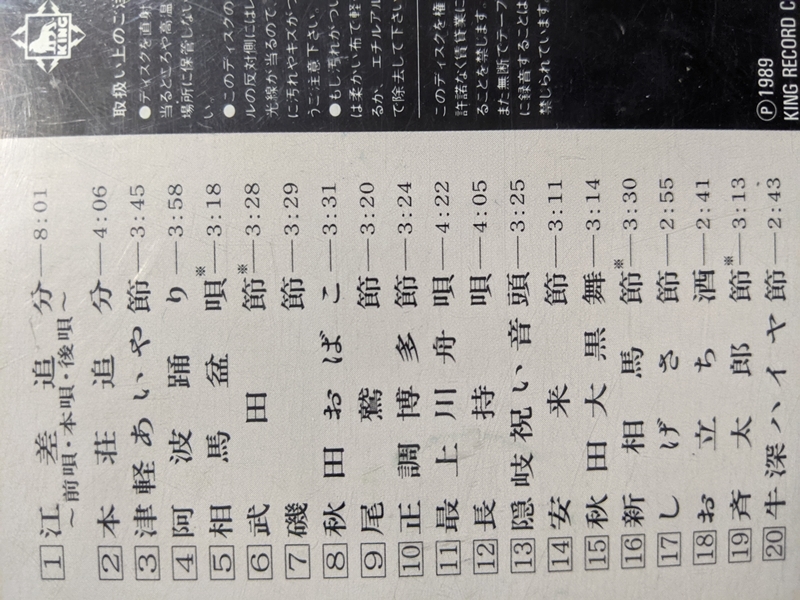 KING
取扱い上のご注
●ディスクを直射
当るところや高温
場所に保管しない
い。
●このディスクの
ルの反対側にはレ
光線が当るので、
に汚れやキズがつ
うご注意下さい。
●もし汚れがつい
は柔かい布で軽
るか、エチルアル
で除去して下さい
このディスクを権
許諾なく賃貸業に
ることを禁じます。
また無断でテープ
に録音することは
禁じられています。
Ⓟ1989
KING RECORD C
1 江差追分—8:01
～前唄・本唄・後唄～
2 本荘追分—4:06
3 津軽あいや節—3:45
4 阿波踊り—3:58
5 相馬盆唄※—3:18
6 武田節※—3:28
7 磯節—3:29
8 秋田おばこ—3:31
9 尾鷲節—3:20
10 正調博多節—3:24
11 最上川舟唄—4:22
12 長持唄—4:05
13 隠岐祝い音頭—3:25
14 安来節—3:11
15 秋田大黒舞—3:14
16 新相馬節※—3:30
17 しげさ節—2:55
18 お立ち酒—2:41
19 斉太郎節※—3:13
20 牛深ハイヤ節—2:43